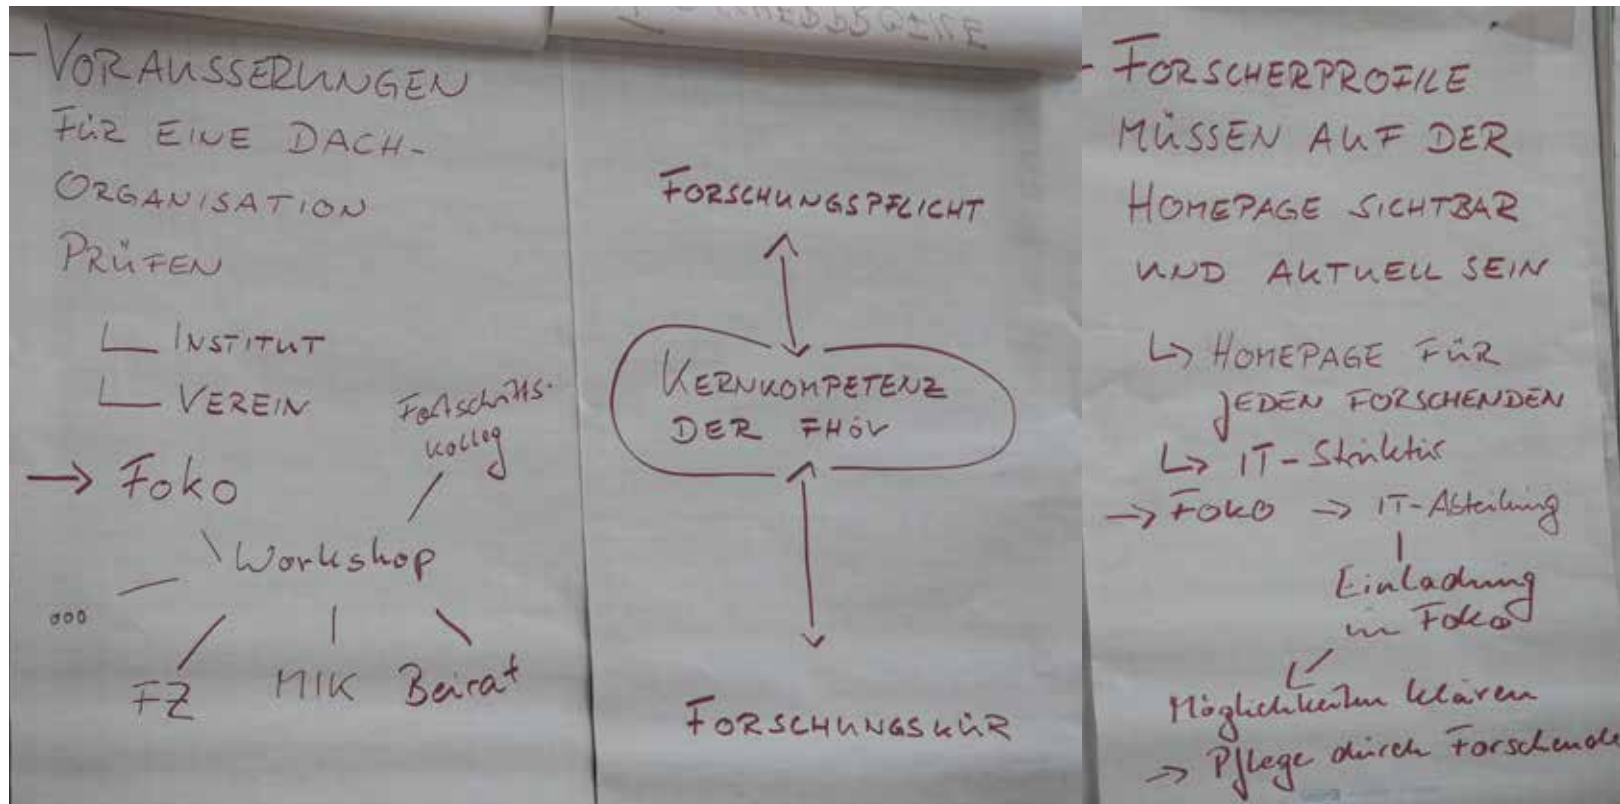 - VORAUSSERUNGEN
FÜR EINE DACH-
ORGANISATION
PRÜFEN
INSTITUT
VEREIN
Fortschritts-
kolleg
→ Foko
Workshop
ooo
FZ MIK Beirat
FORSCHUNGSPFLICHT
KERNKOMPETENZ
DER FHöV
FORSCHUNGSKÜR
- FORSCHERPROFILE
MÜSSEN AUF DER
HOMEPAGE SICHTBAR
UND AKTUELL SEIN
↳ HOMEPAGE FÜR
JEDEN FORSCHENDEN
↳ IT-Struktur
→ FOKO → IT-Abteilung
Einladung
in Foko
Möglichkeiten klären
→ Pflege durch Forschende